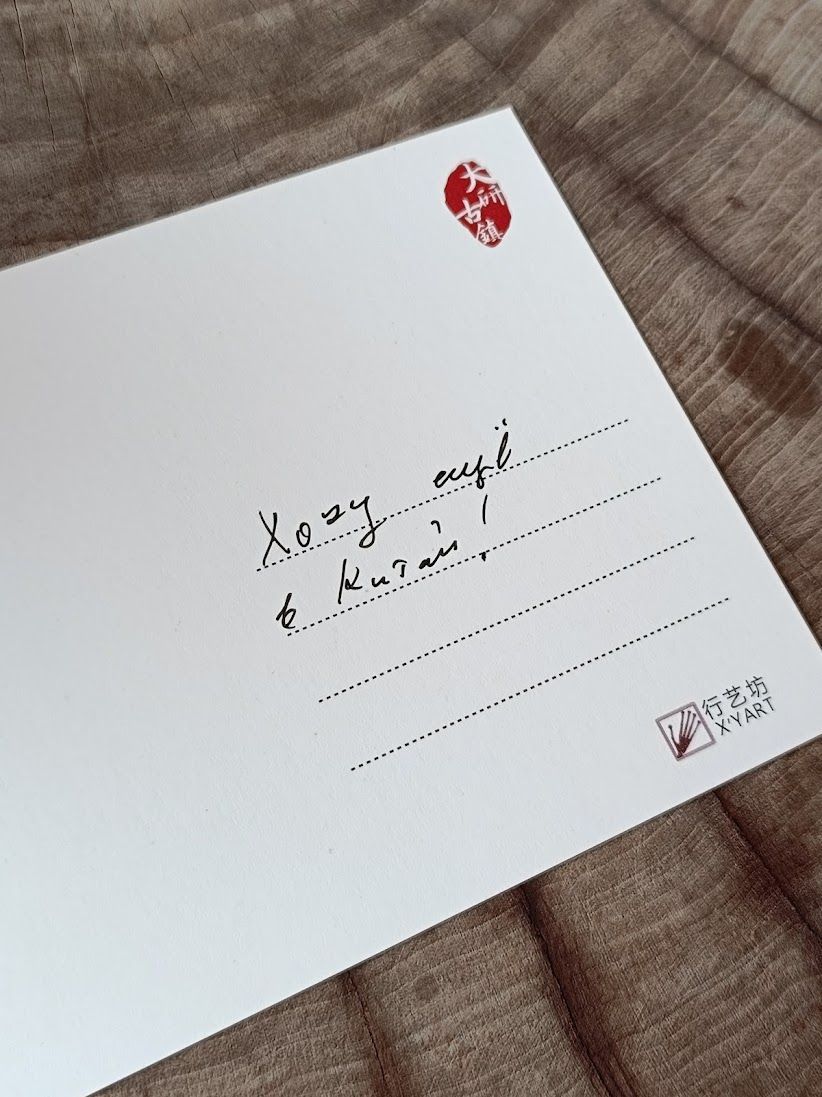 大研
古鎮
Хочу ещё
в Китай!
行艺坊
X'YART